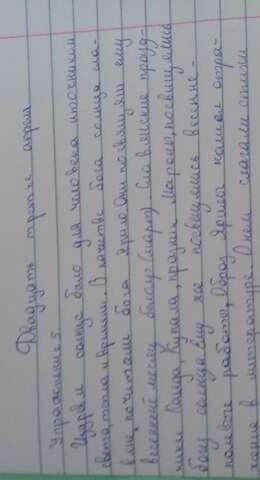 Двадцать третье апреля
Упражнение 5.
Щедрое солнце было для человека источником
света, тепла и времени. В качестве бога солнца сла-
вяне почитали бога Ярило. Они посвящали ему
весенний месяц белояр (март). Славянские празд-
ники Коляда, Купала, праздник Марены, посвящались
богу солнца. Ему же посвящались весенне-
полевые работы. Образ Ярилы нашел отра-
жение в литературе. О нем слагали стихи